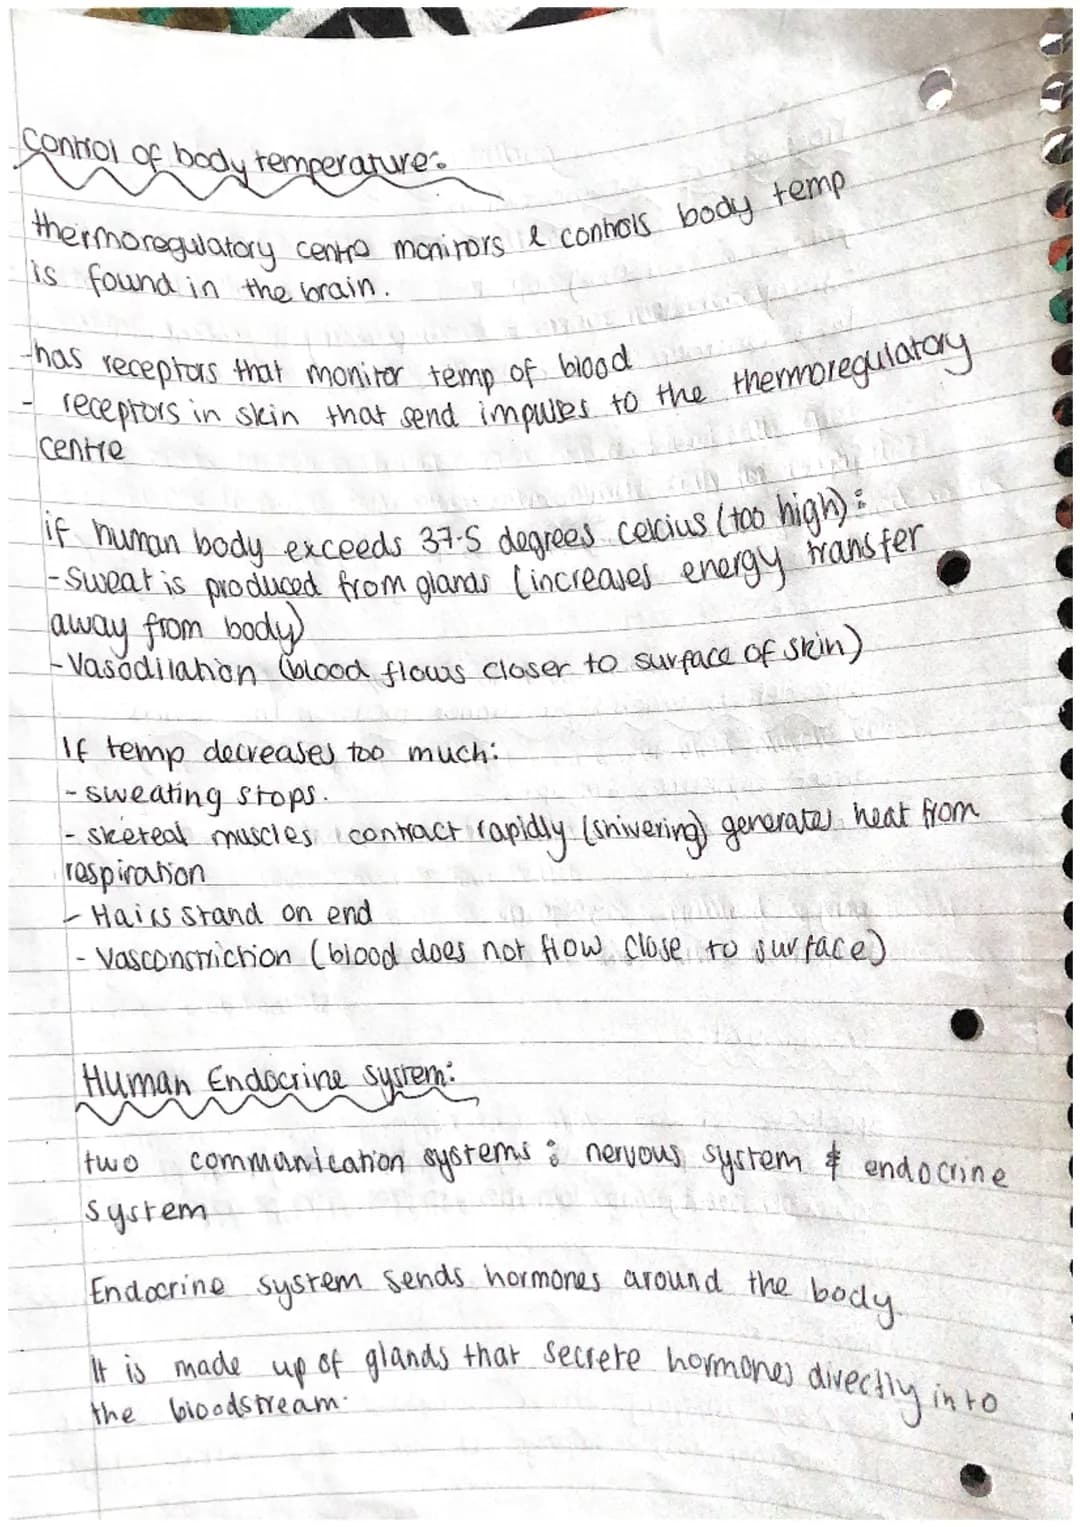 Control of body temperature:
thermoregulatory centre monitors & controls body temp
is found in the brain.
-has receptors that monitor temp of blood
- receptors in skin that send impulses to the thermoregulatory
centre
if human body exceeds 37.5 degrees celcius (too high):
-Sweat is produced from glands (increases energy transfer
away from body)
-Vasodilation (blood flows closer to surface of skin)
If temp decreases too much:
- sweating stops.
- skeletal muscles contract rapidly (shivering) generates heat from
respiration
- Hairs stand on end
- Vasconstriction (blood does not flow close to surface)
Human Endocrine system:
two communication systems: nervous system & endocrine
system
Endocrine system sends hormones around the body.
It is made up of glands that secrete hormones directly into
the bloodstream.